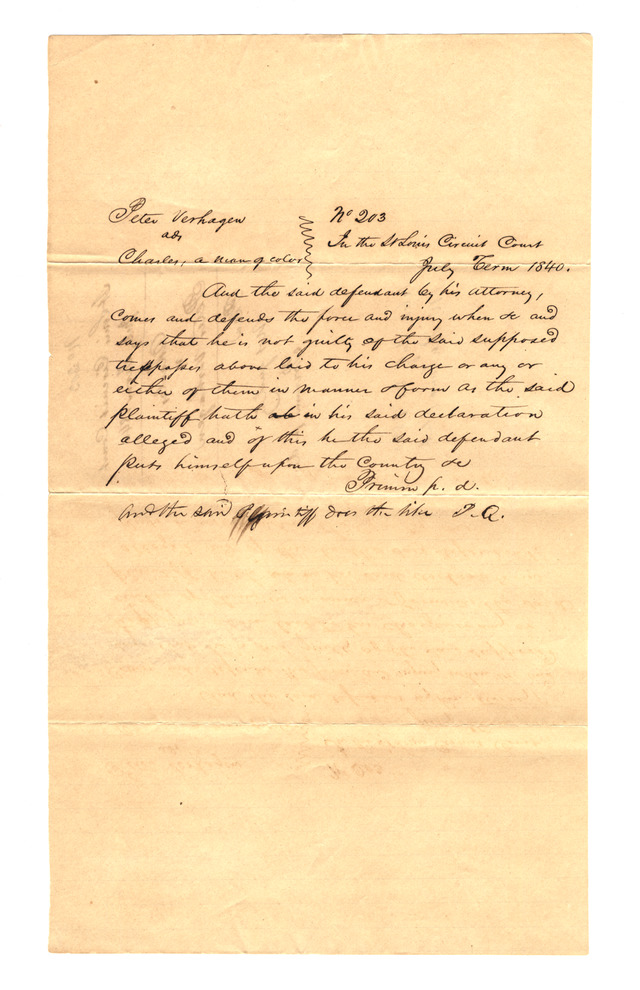 Peter Verhagen
ads
Charles, a man of color
No 203
In the St Louis Circuit Court
July Term 1840.
And the said defendant by his attorney,
comes and defends the force and injury when &c and
says that he is not guilty of the said supposed
trespasses above laid to his charge or any or
either of them in manner & form as the said
plaintiff hath in his said declaration
alleged and of this he the said defendant
puts himself upon the Country &c
Primm p. d.
And the said plaintiff does the like P.Q.